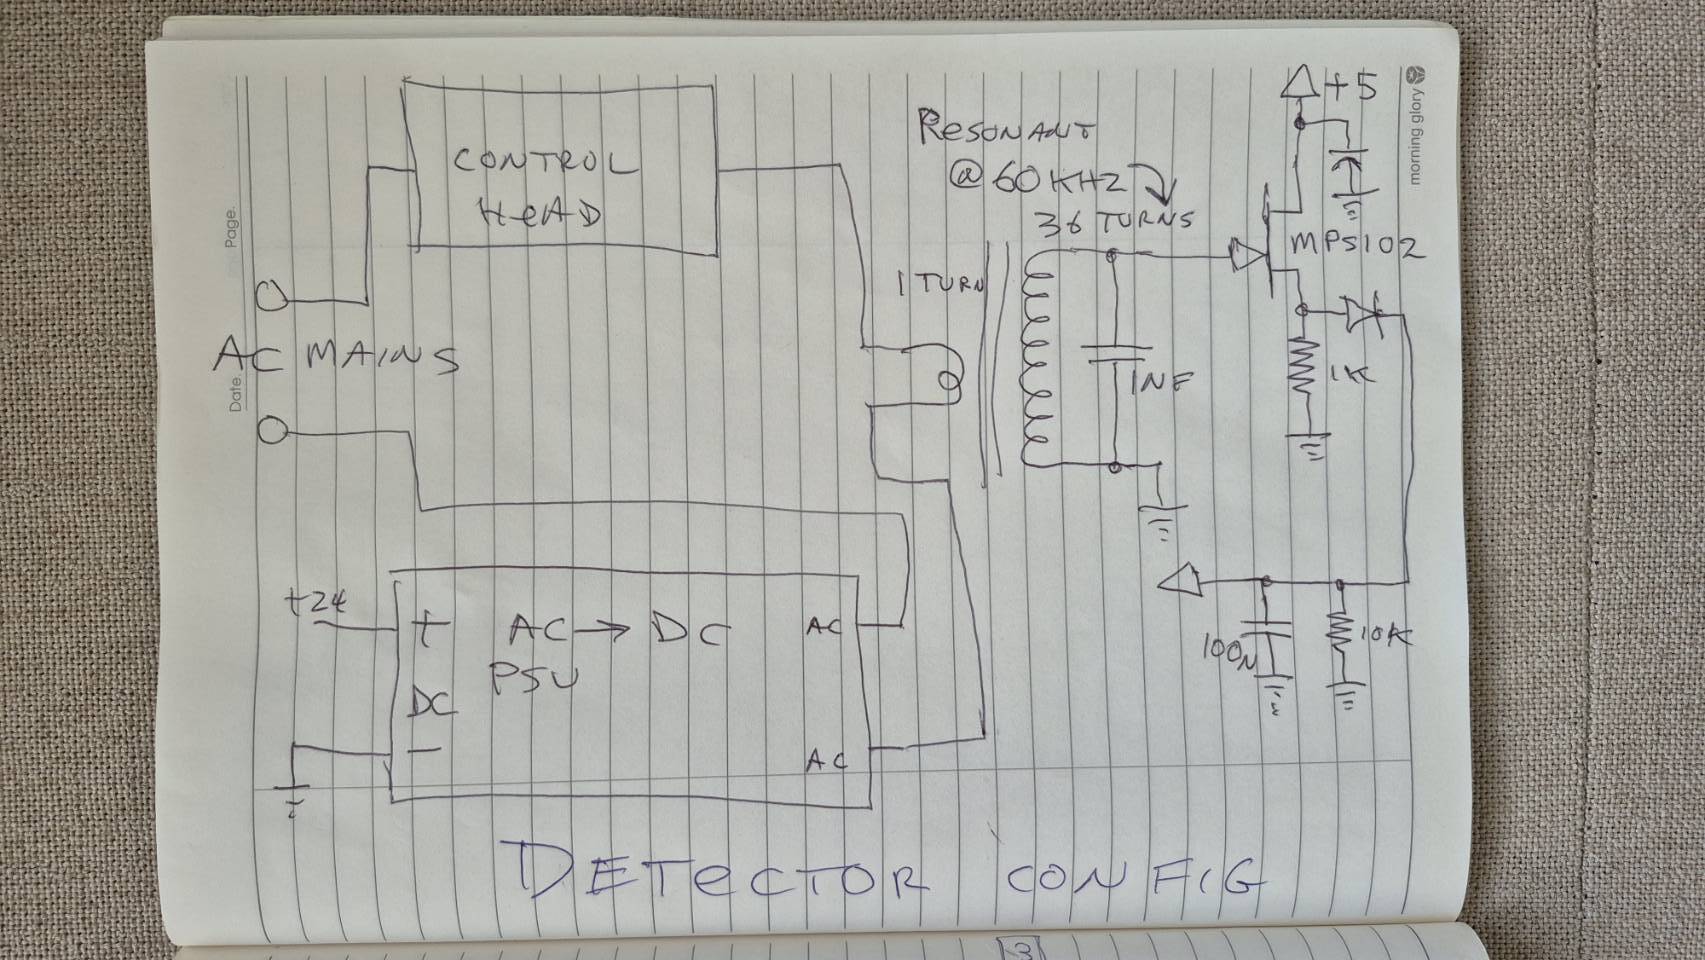 morning glory
Page.
Date.
+5
RESONANT
@ 60 KHZ
36 TURNS
CONTROL
HeAD
MPS102
1 TURN
1NF
1K
AC MAINS
+24
+
AC → DC
PSU
AC
DC
−
AC
100N
10K
DETeCTOR CONFIG
3